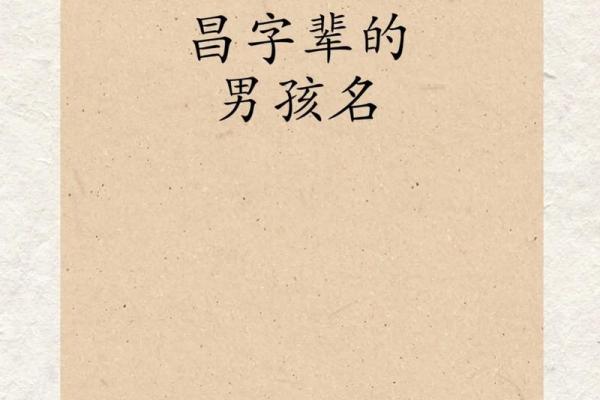 昌字辈的
男孩名